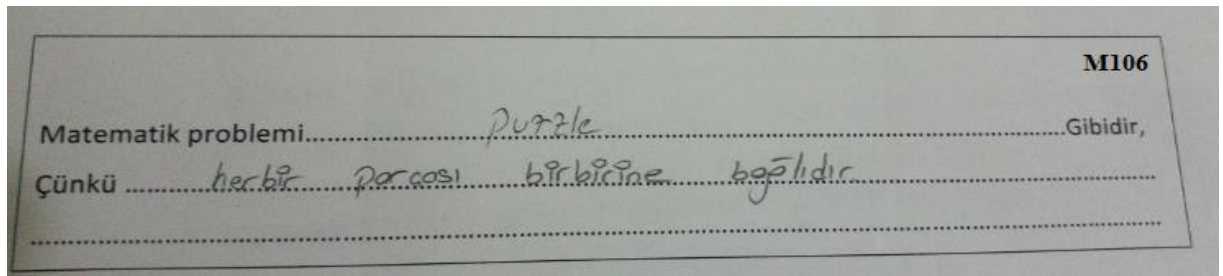 M106
Matematik problemi.......puzzle.......Gibidir,
Çünkü.......herbir parçası birbirine bağlıdır.......